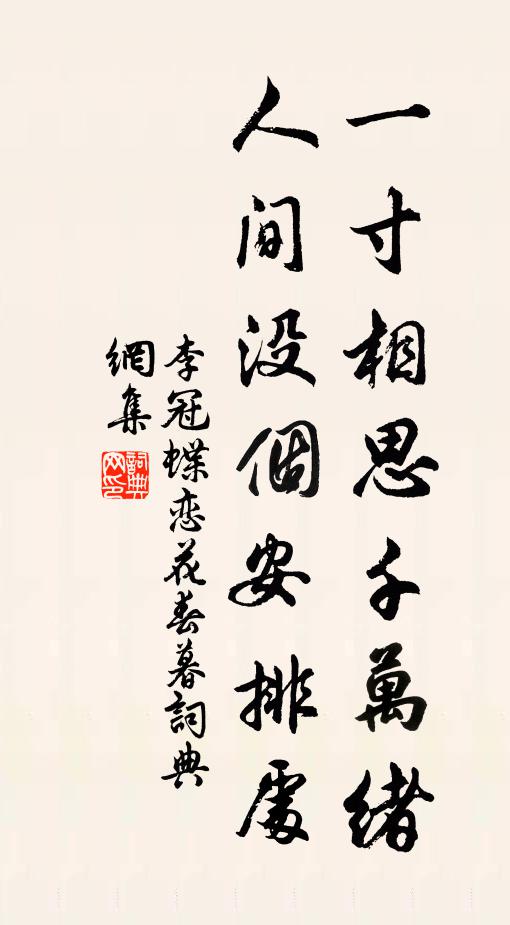 一寸相思千萬緒
人间没個安排處
李冠蝶恋花春暮詞典
網集
詞典
网印